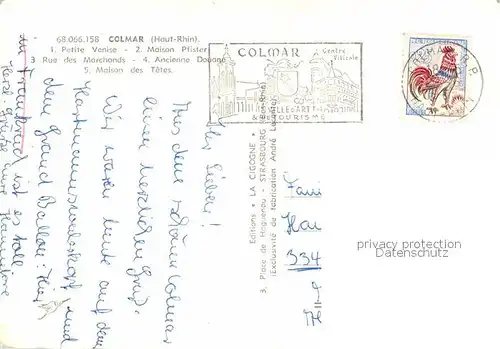 68.066.158 COLMAR (Haut-Rhin).
1. Petite Venise - 2. Maison Pfister
3 Rue des Marchands - 4. Ancienne Douane
5. Maison des Têtes.
COLMAR
Centre
Viticole
VILLE d'ART
& de TOURISME
Editions "LA CIGOGNE"
3, Place de Haguenau - STRASBOURG (Bas-Rhin)
(Exclusivité de fabrication André Leconte)
Ihr Lieben!
Aus dem schönen Colmar
einen herzlichen Gruß.
Wir waren heute auf dem
Hartmannsweilerkopf und
dem Grand Ballon. Hier
in Frankreich ist es toll
Herzl. Grüße
Fami
Han
334
privacy protection
Datenschutz